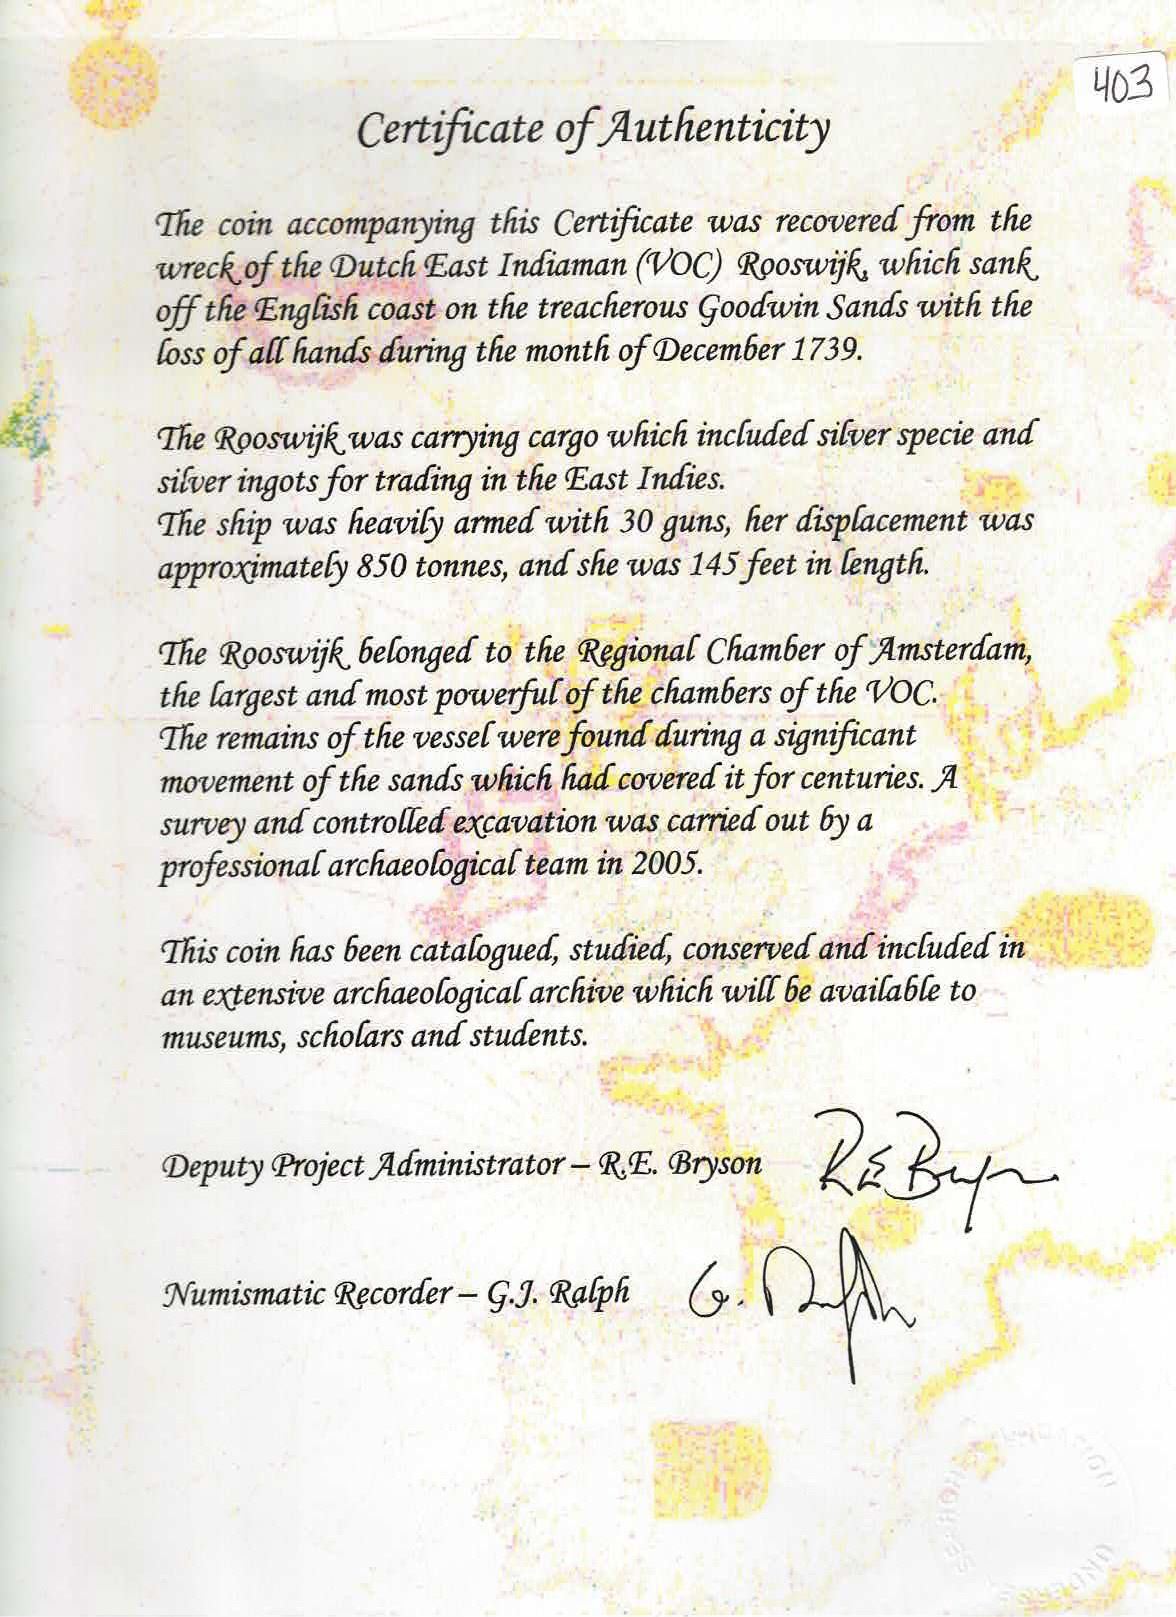 403
Certificate of Authenticity
The coin accompanying this Certificate was recovered from the
wreck of the Dutch East Indiaman (VOC) Rooswijk, which sank
off the English coast on the treacherous Goodwin Sands with the
loss of all hands during the month of December 1739.
The Rooswijk was carrying cargo which included silver specie and
silver ingots for trading in the East Indies.
The ship was heavily armed with 30 guns, her displacement was
approximately 850 tonnes, and she was 145 feet in length.
The Rooswijk belonged to the Regional Chamber of Amsterdam,
the largest and most powerful of the chambers of the VOC.
The remains of the vessel were found during a significant
movement of the sands which had covered it for centuries. A
survey and controlled excavation was carried out by a
professional archaeological team in 2005.
This coin has been catalogued, studied, conserved and included in
an extensive archaeological archive which will be available to
museums, scholars and students.
Deputy Project Administrator – R.E. Bryson R E Bryson
Numismatic Recorder – G.J. Ralph G. Ralph